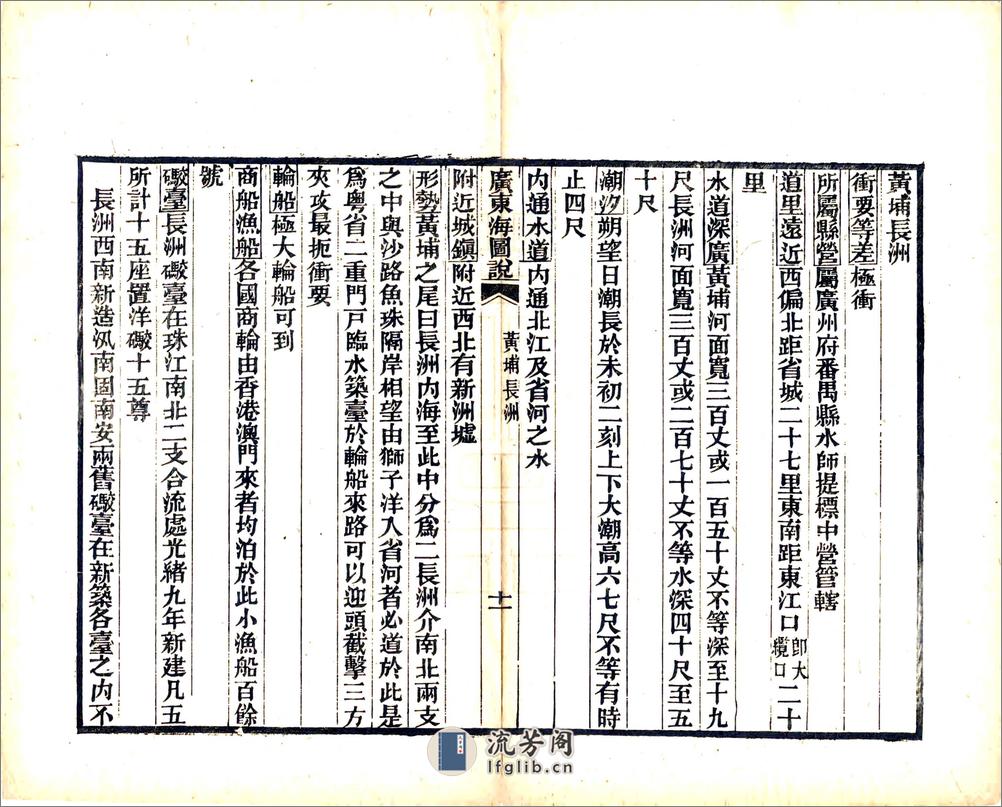 黃埔長洲
衝要等差極衝
所屬縣營屬廣州府番禺縣水師提標中營管轄
道里遠近西偏北距省城二十七里東南距東江口即大纜口二十
里
水道深廣黃埔河面寬三百丈或一百五十丈不等深至十九
尺長洲河面寬三百丈或二百七十丈不等水深四十尺至五
十尺
潮汐朔望日潮長於未初二刻上下大潮高六七尺不等有時
止四尺
內通水道內通北江及省河之水
廣東海圖說
黃埔長洲
十一
附近城鎮附近西北有新洲墟
形勢黃埔之尾曰長洲內海至此中分爲二長洲介南北兩支
之中與沙路魚珠隔岸相望由獅子洋入省河者必道於此是
爲粵省二重門戶臨水築臺於輪船來路可以迎頭截擊三方
夾攻最扼衝要
輪船極大輪船可到
商船漁船各國商輪由香港澳門來者均泊於此小漁船百餘
號
礮臺長洲礮臺在珠江南北二支合流處光緒九年新建凡五
所計十五座置洋礮十五尊
長洲西南新造汛南固南安兩舊礮臺在新築各臺之內不
流芳阁
lfglib.cn